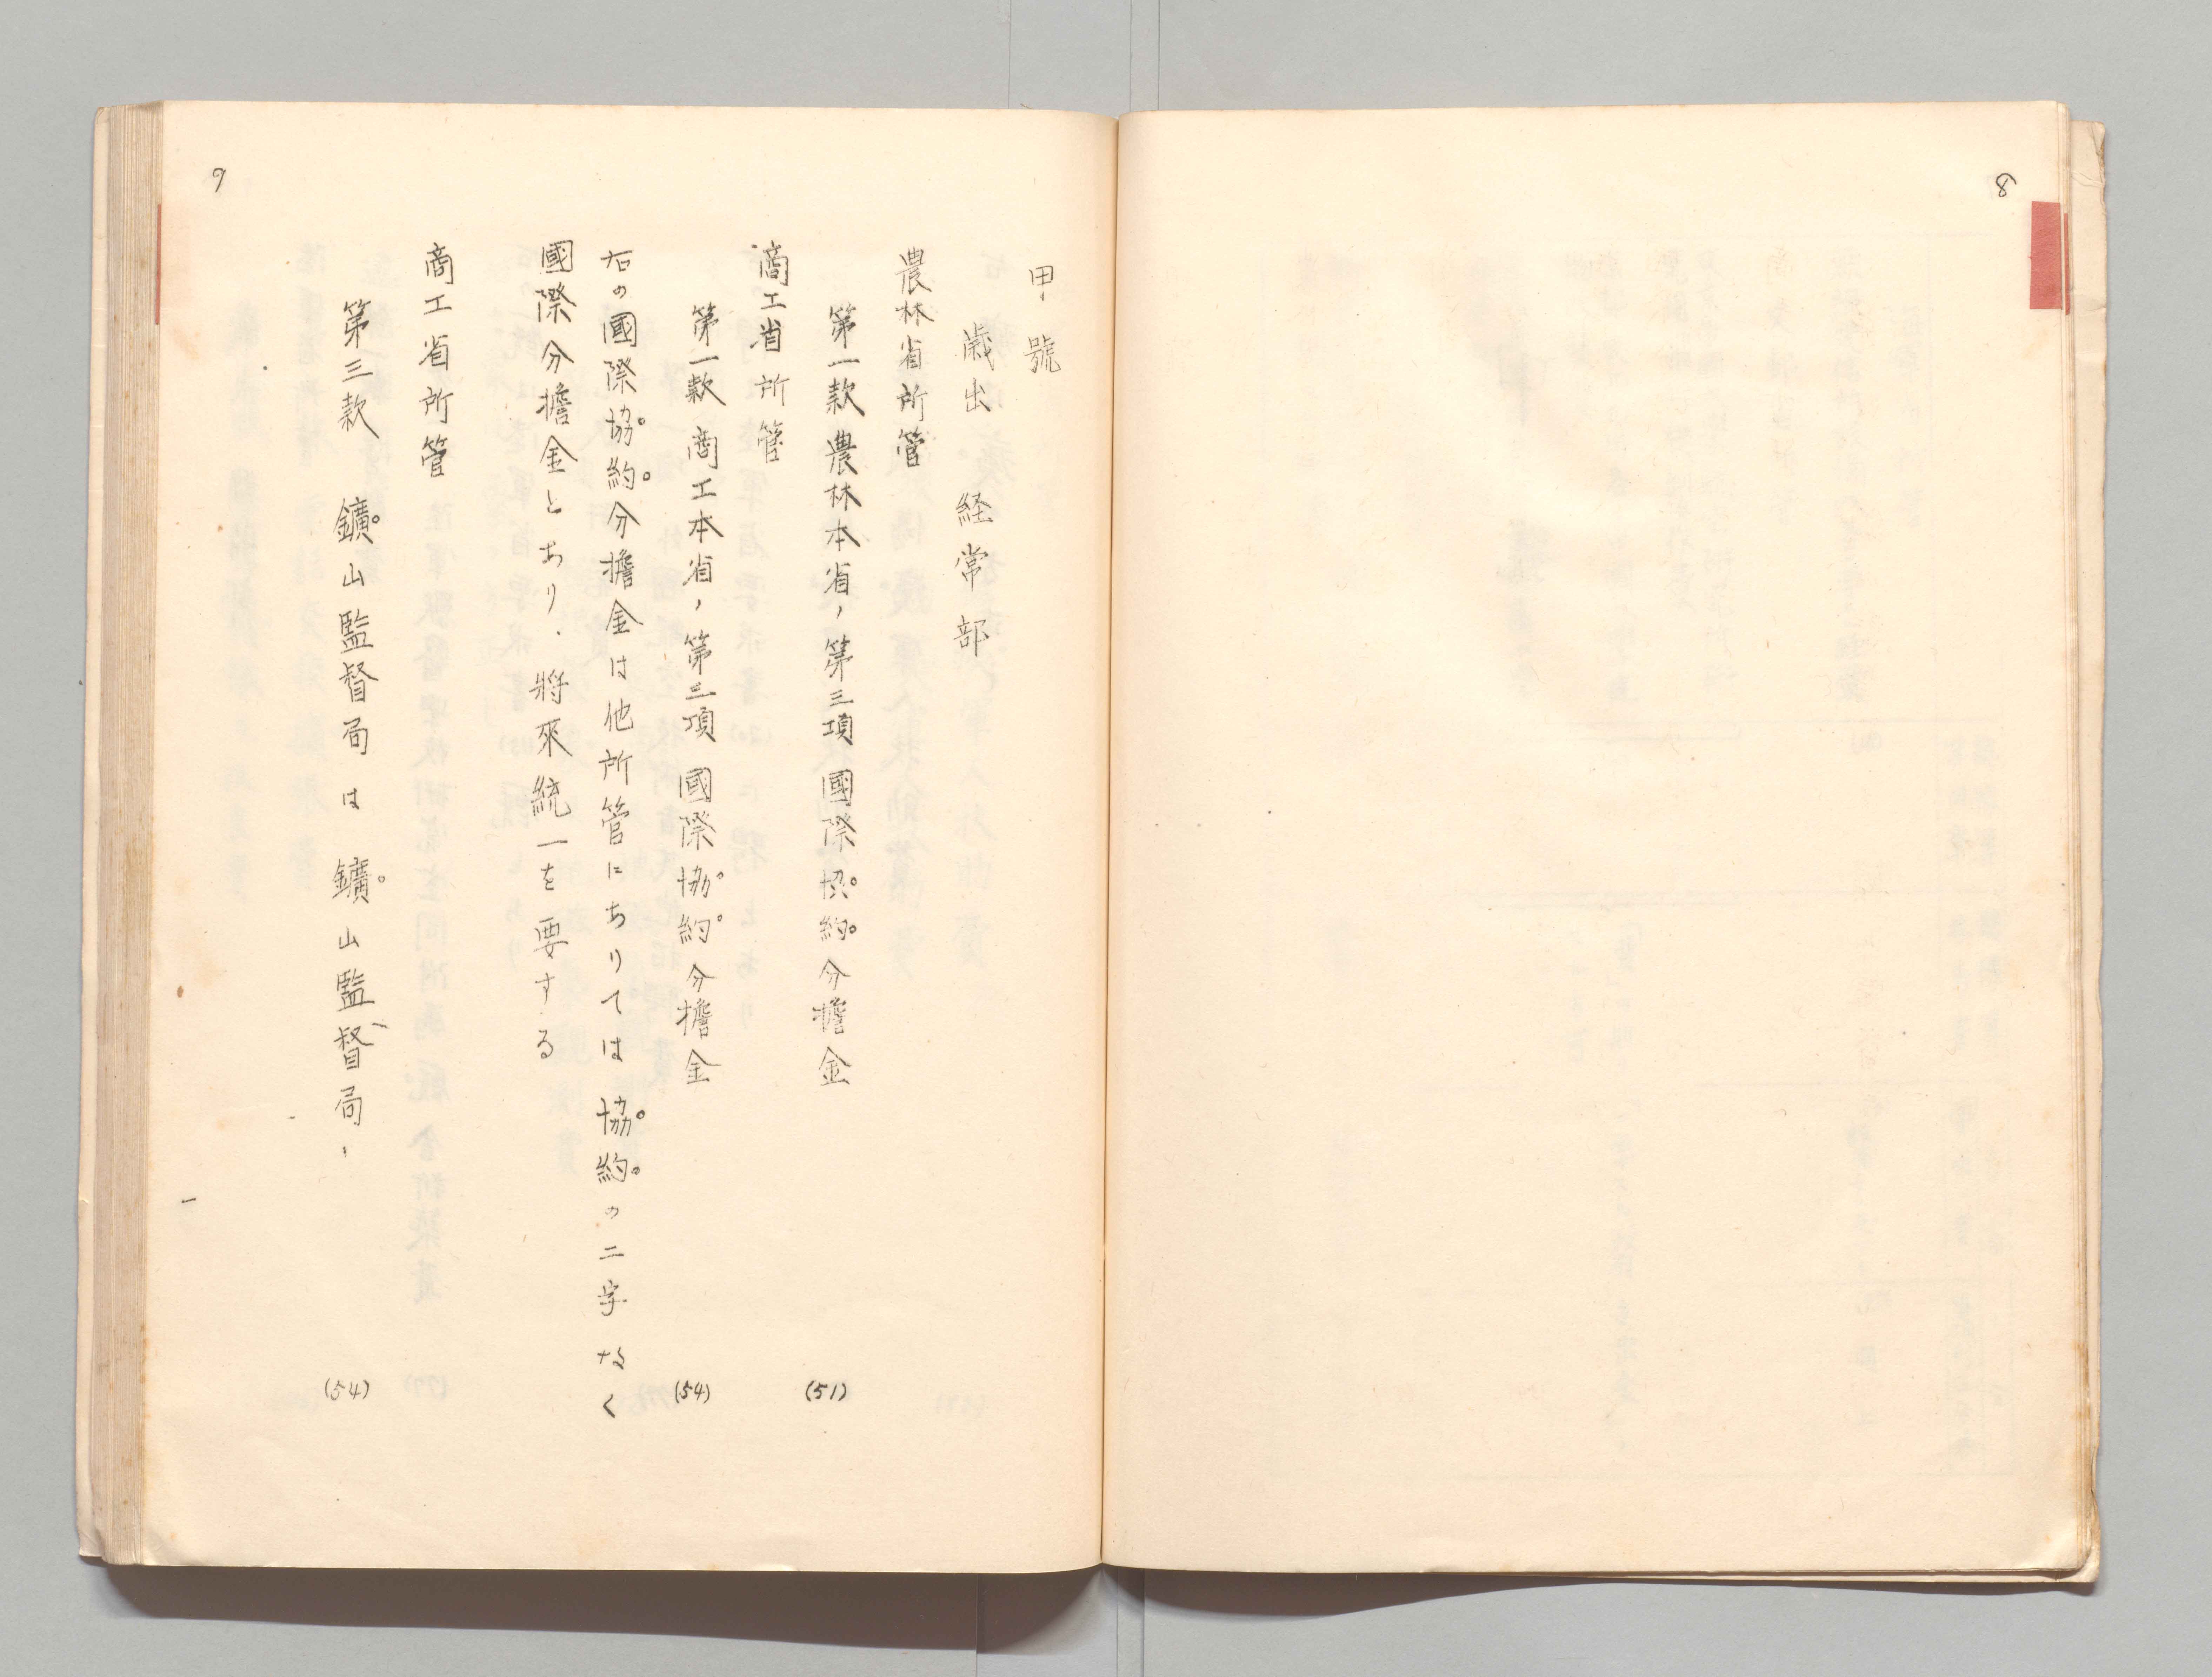 8
9
甲號
歳出 経常部
農林省所管
第一款 農林本省，第三項 國際協。約。分擔金 (51)
商工省所管
第一款 商工本省，第二項 國際協。約。分擔金 (54)
右の國際協。約。分擔金は他所管にありては協。約。の二字なく
國際分擔金とあり．將來統一を要する
商工省所管
第三款 鑛。山監督局は鑛。山監督局． (54)